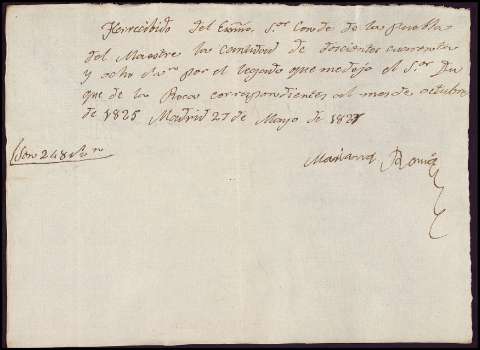 He recibido del Exmo. Sor. Conde de la puebla
del Maestre la cantidad de doscientos cuarenta
y ocho rs. vn por el legado que medejo el Sor. Du
que de la Roca correspondientes al mes de octubre
de 1825 Madrid 27 de Mayo de 1827
Son 248 rs. vn
Mariana Roma